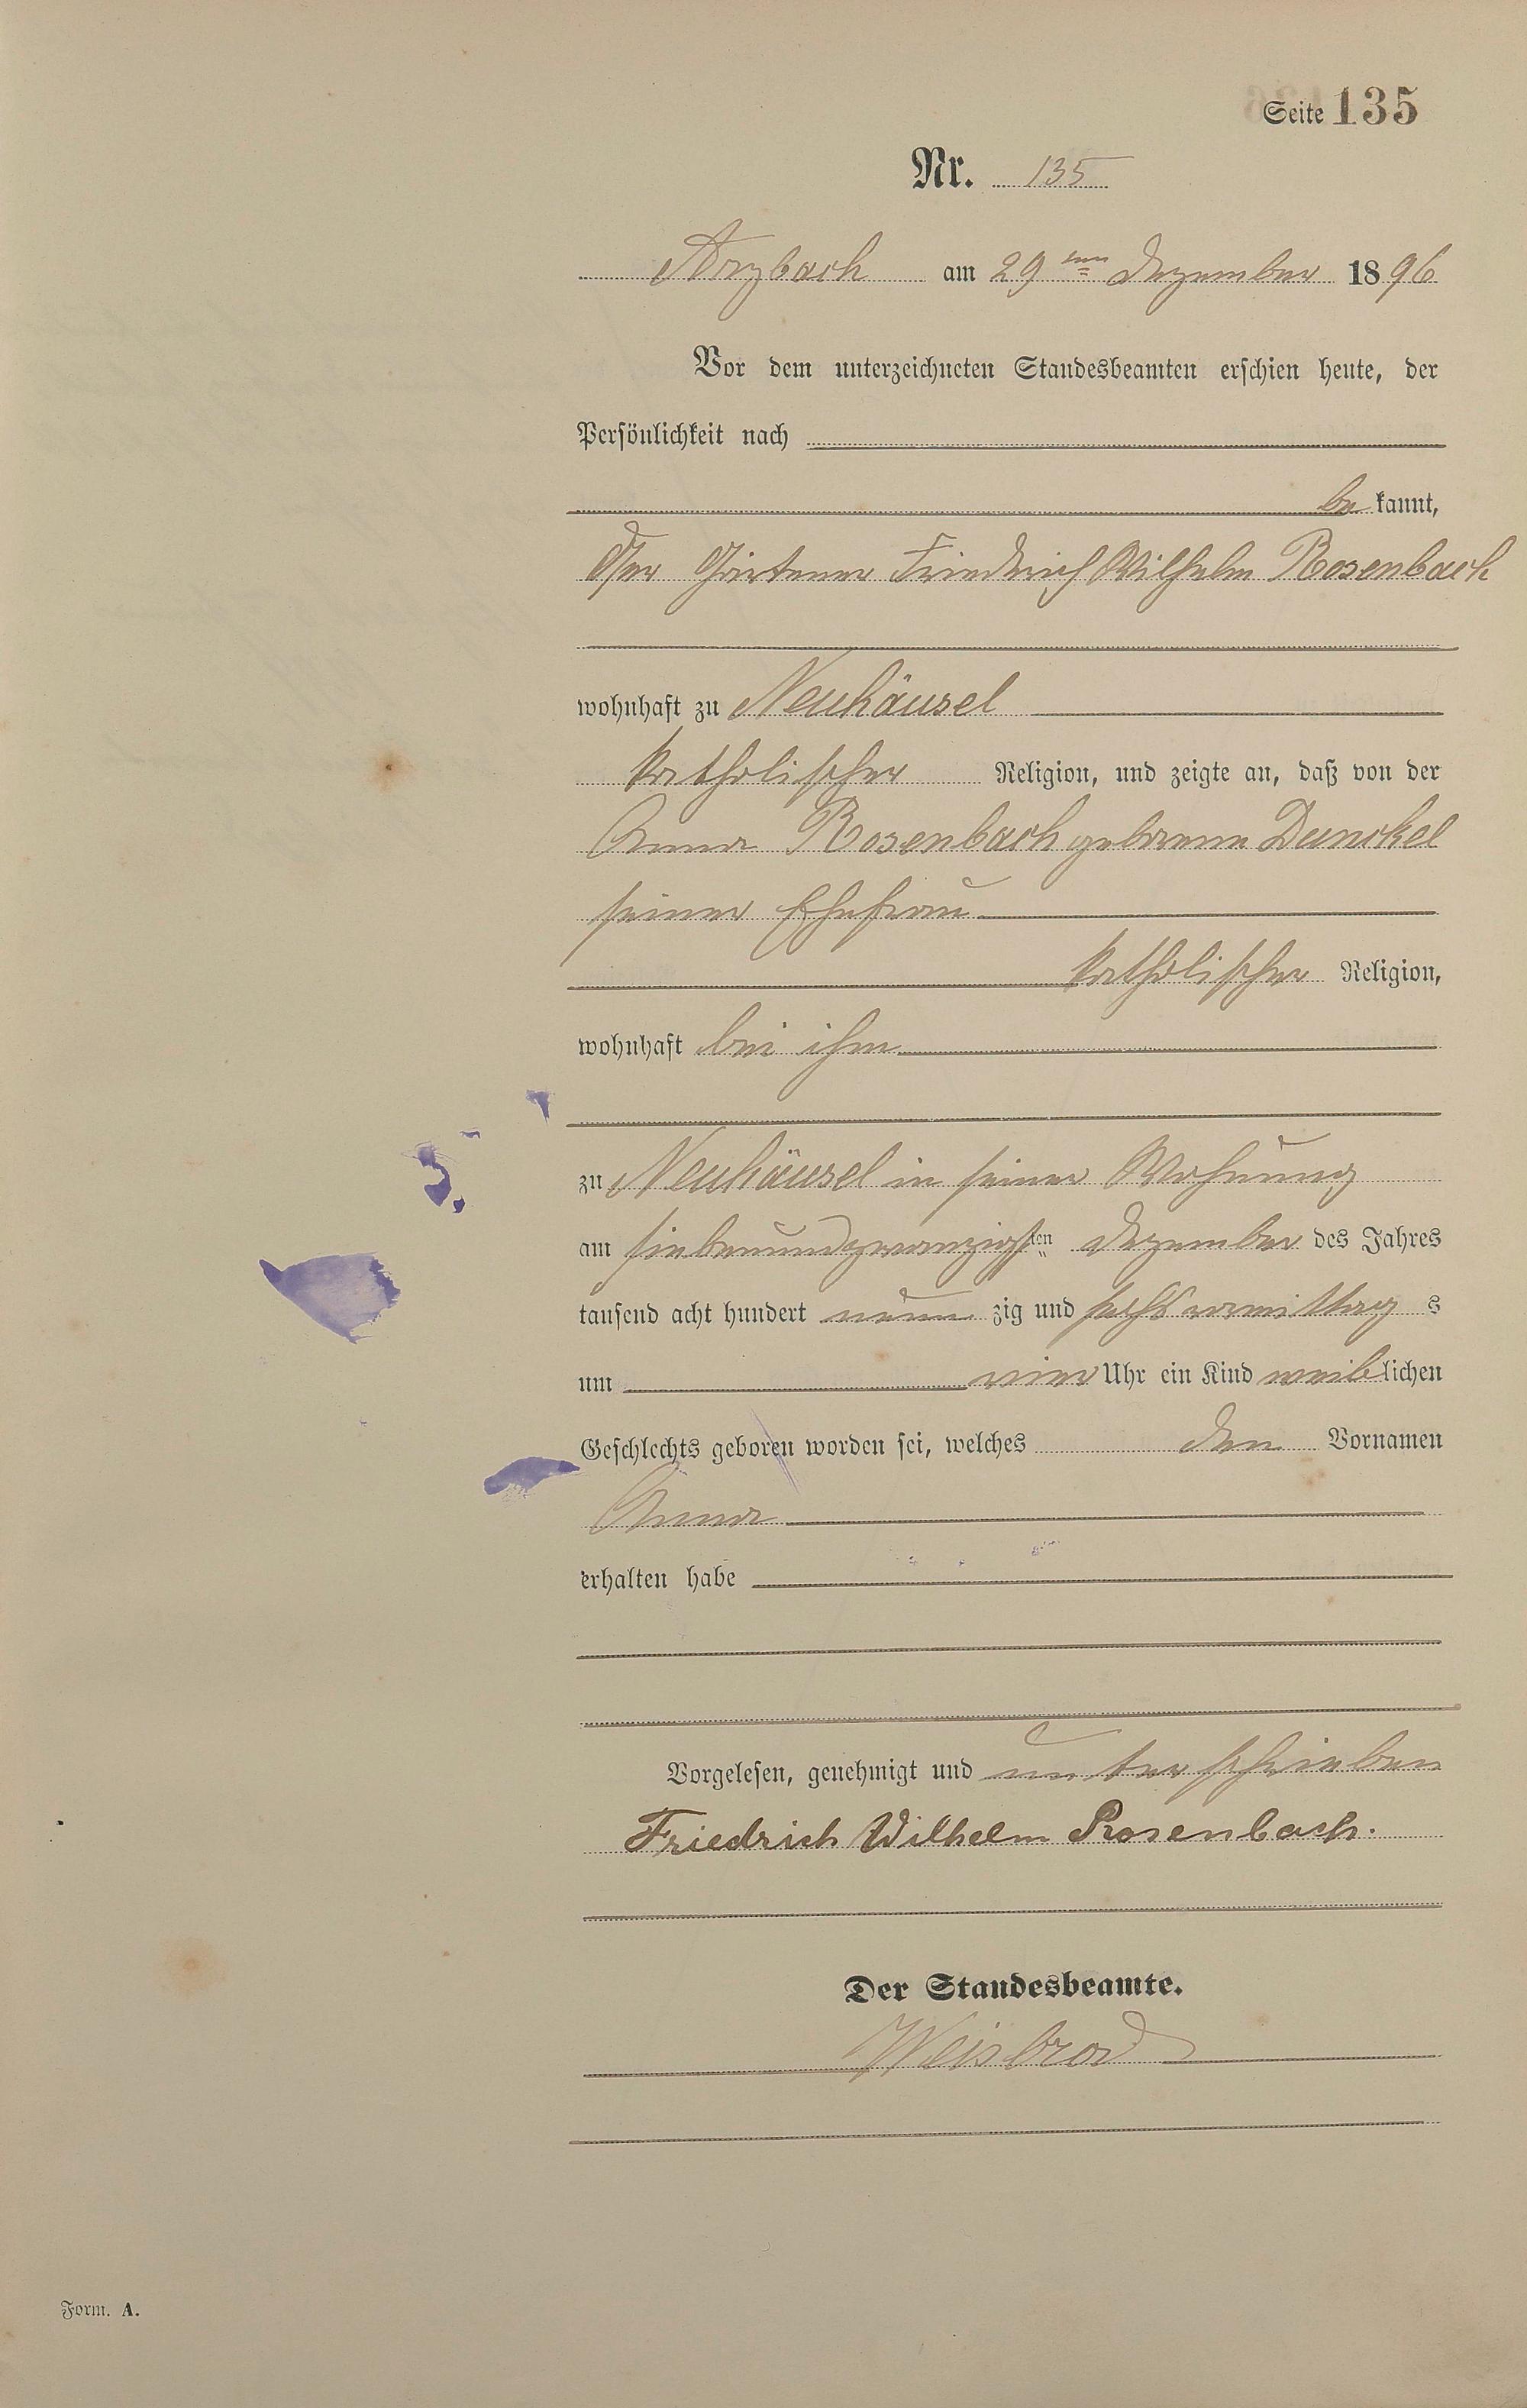 Seite 135
Nr. 135
Arzbach am 29ten Dezember 1896
Vor dem unterzeichneten Standesbeamten erschien heute, der
Persönlichkeit nach
bekannt,
Der Gärtner Friedrich Wilhelm Rosenbach
wohnhaft zu Neuhäusel
katholischer Religion, und zeigte an, daß von der
Anna Rosenbach geborene Dunckel
seiner Ehefrau
katholischer Religion,
wohnhaft bei ihm
zu Neuhäusel in seiner Wohnung
am siebenundzwanzigsten Dezember des Jahres
tausend acht hundert neunzig und sechs vormittags
um vier Uhr ein Kind weiblichen
Geschlechts geboren worden sei, welches den Vornamen
Anna
erhalten habe
Vorgelesen, genehmigt und unterschrieben
Friedrich Wilhelm Rosenbach.
Der Standesbeamte.
Weisbrod
Form. A.